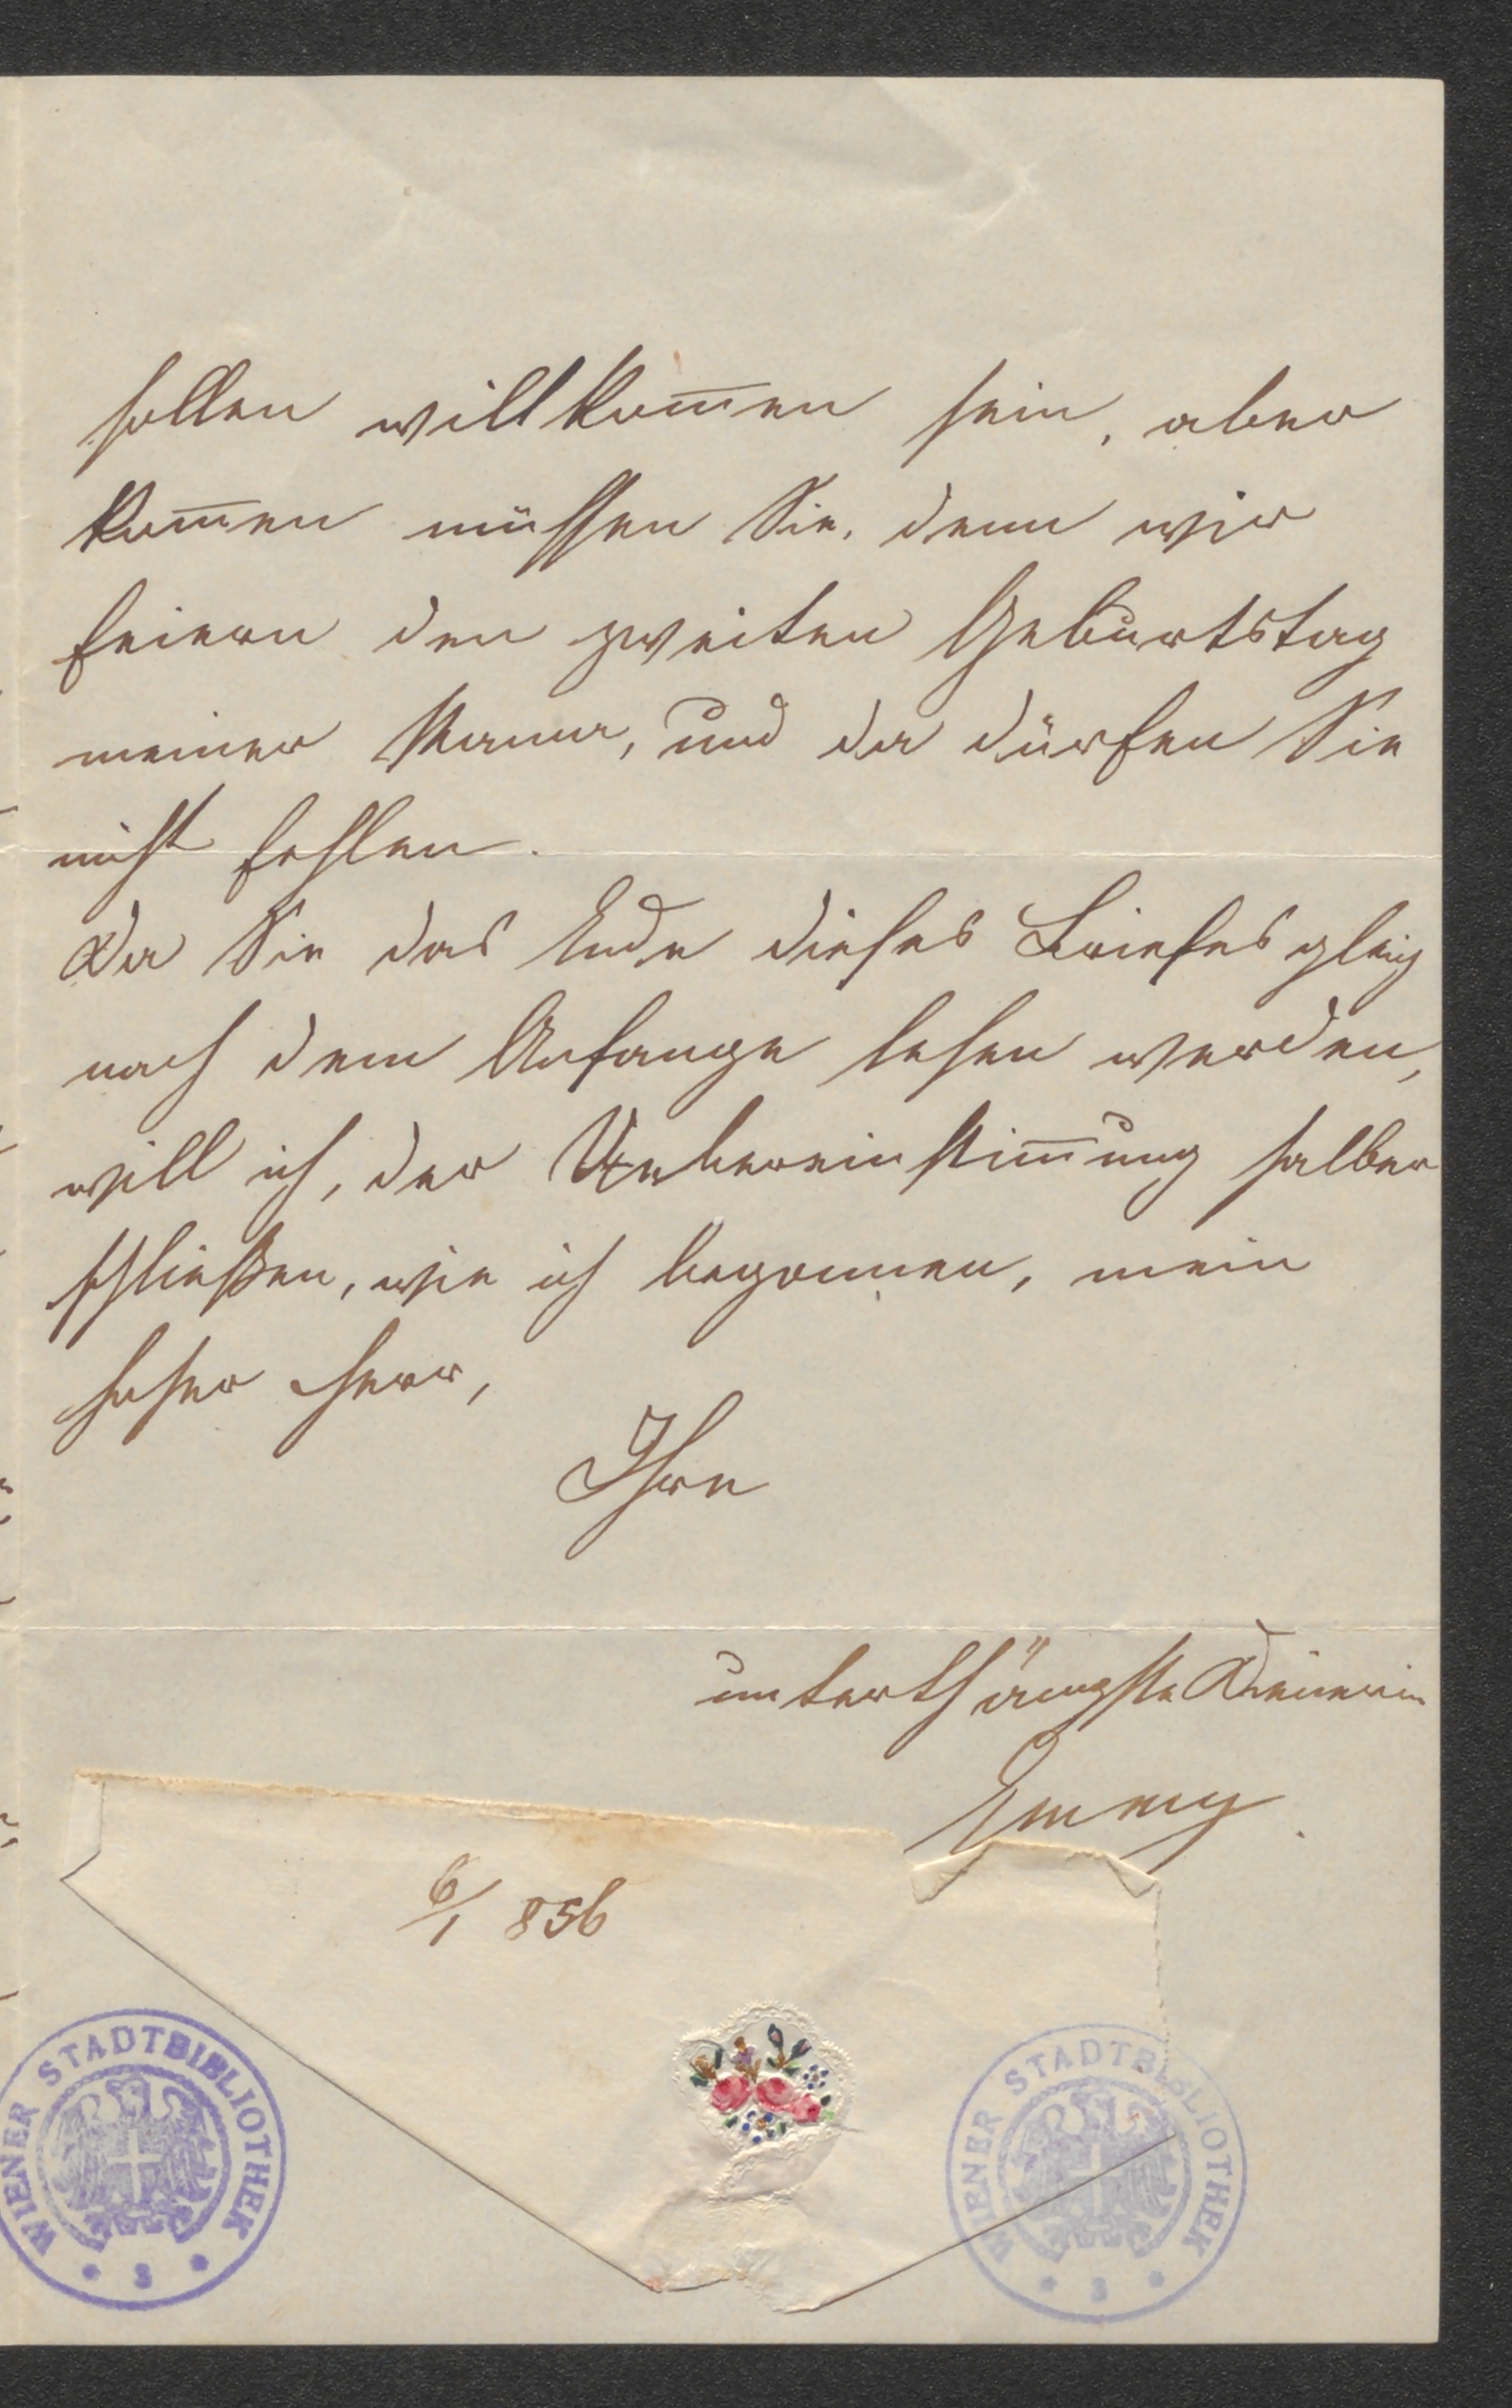 sollen willkom̅en sein, aber
kom̅en müssen Sie, denn wir
feiern den zweiten Geburtstag
meiner Mama, und da dürfen Sie
nicht fehlen.
Da Sie das Ende dieses Briefes gleich
nach dem Anfange lesen werden,
will ich, der Uebereinstim̅ung halber
schließen, wie ich begonnen, mein
hoher Herr,
Ihre
unterthänigste Dienerin
Emmy.
6/1 856
WIENER STADTBIBLIOTHEK
* S *
WIENER STADTBIBLIOTHEK
* S *